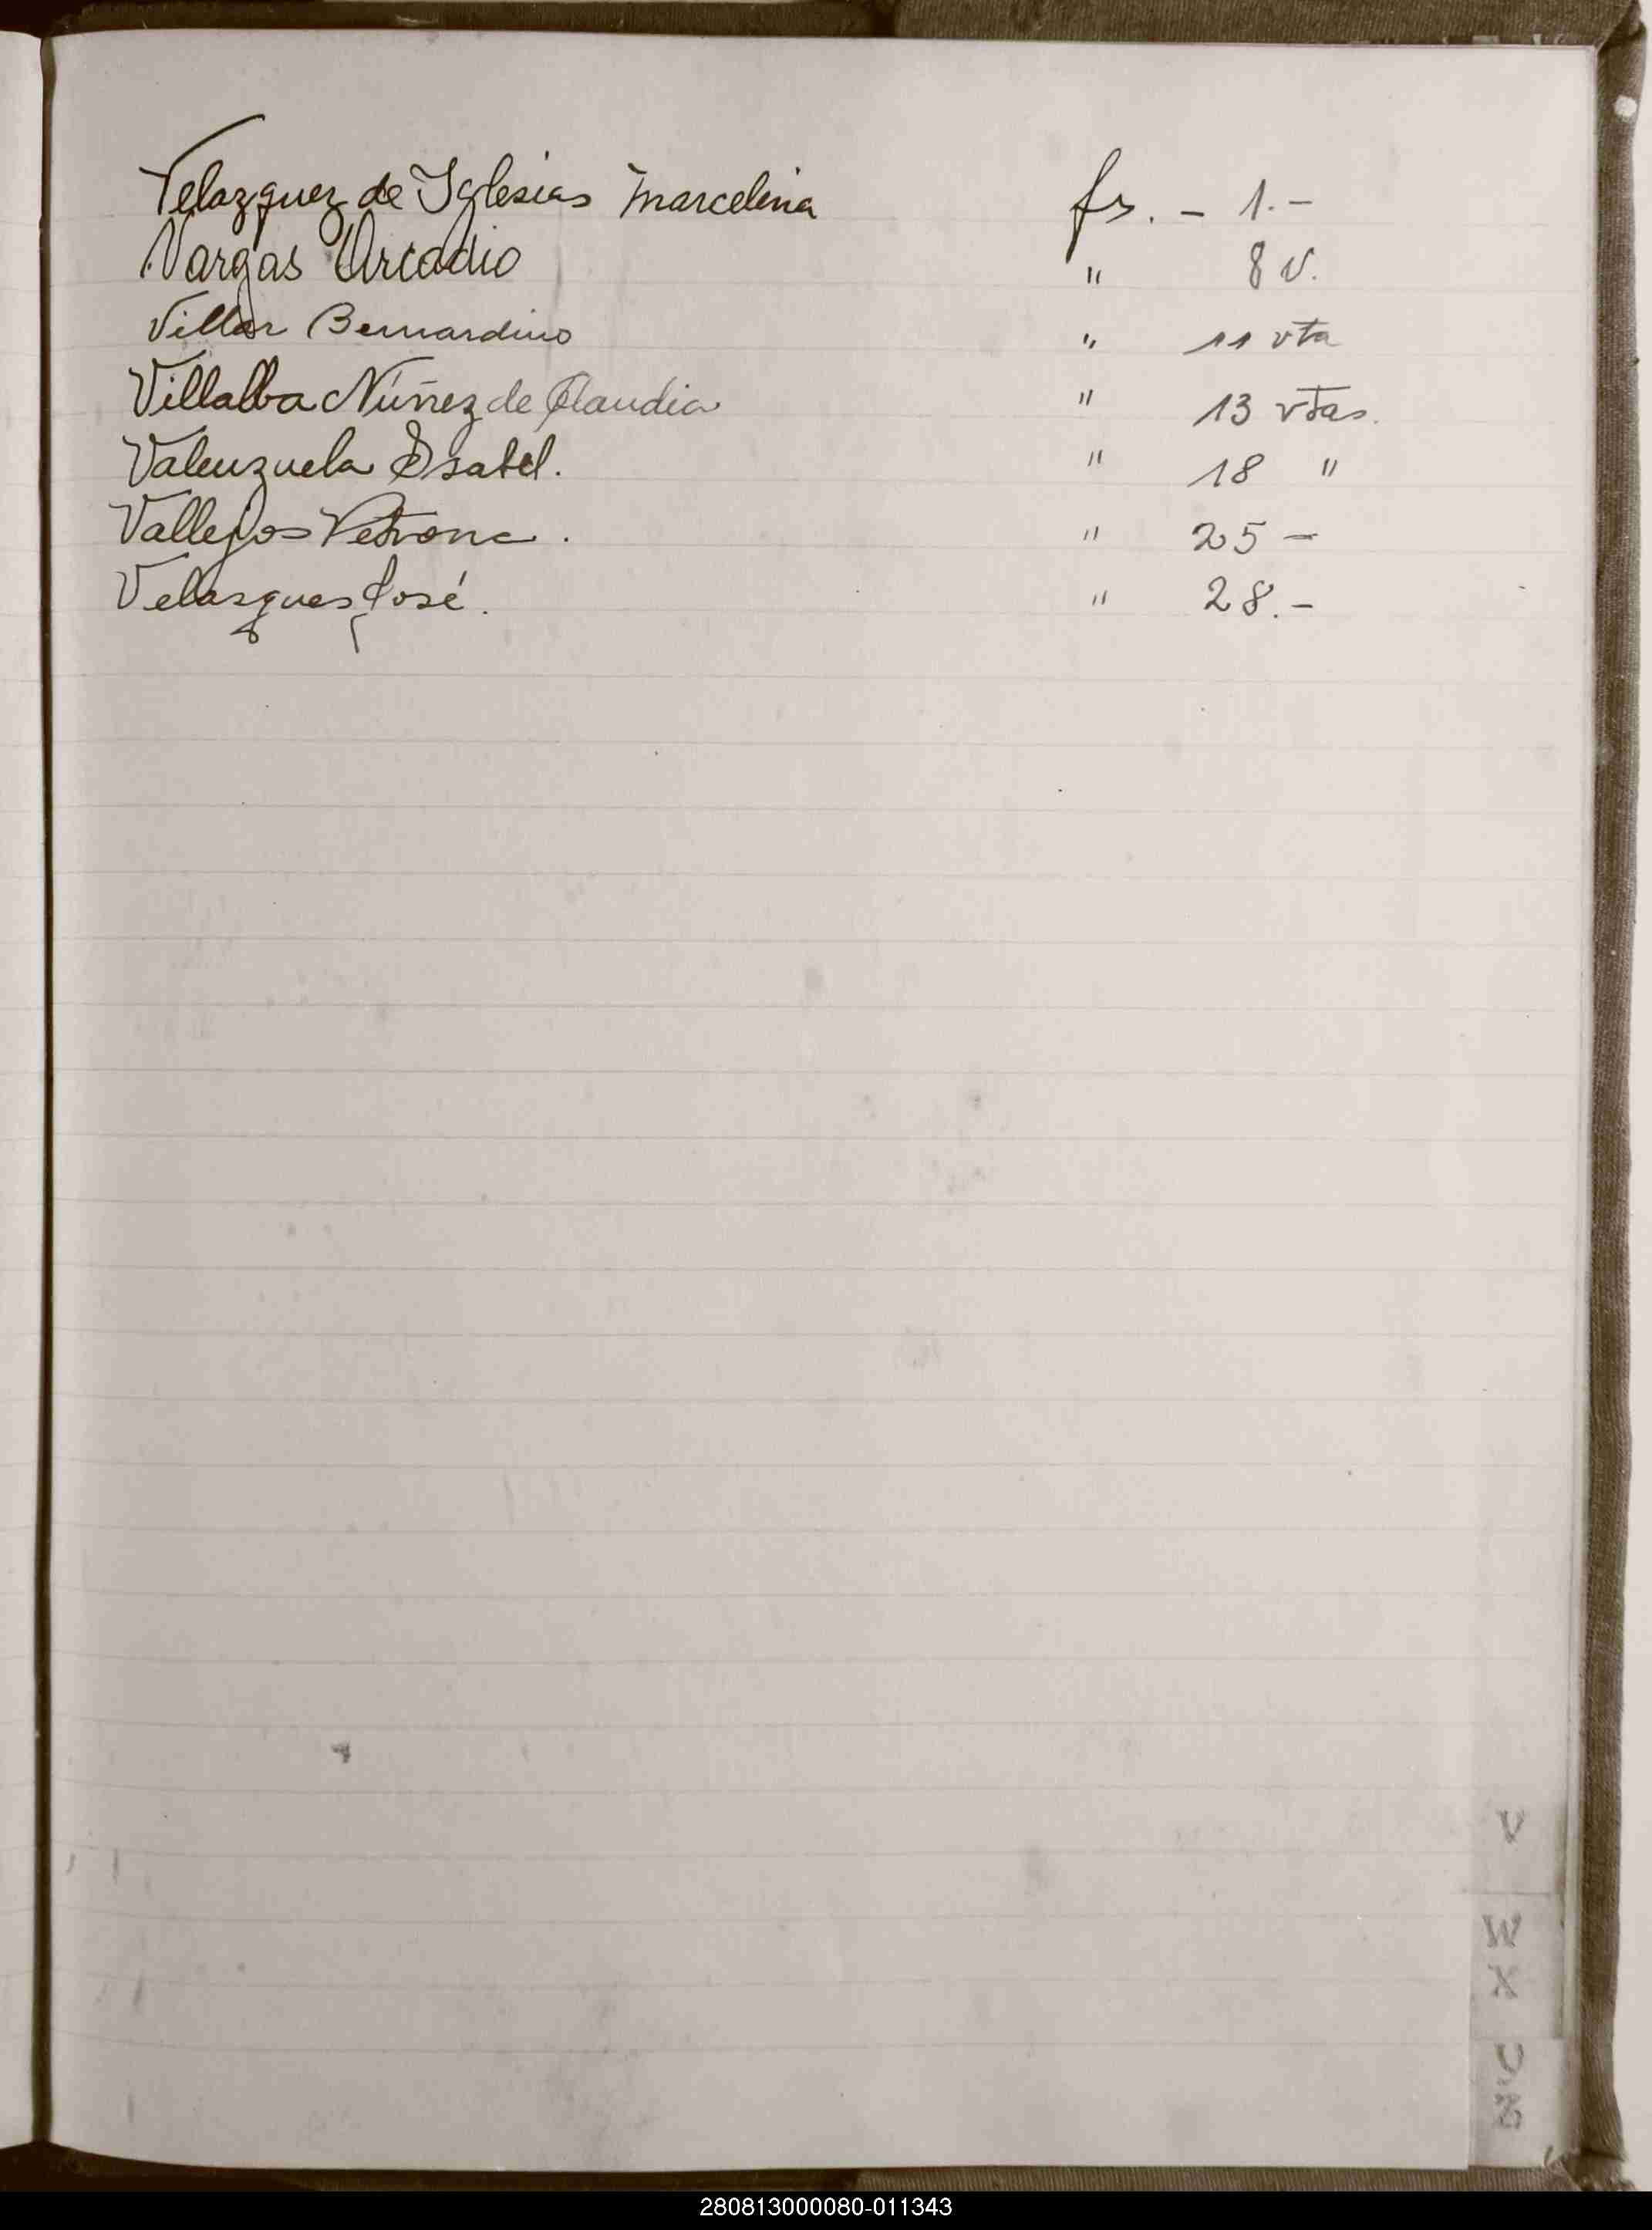 Velazquez de Iglesias Marcelina fs. - 1.-
Vargas Arcadio " 8 v.
Villar Bernardino " 11 vta
Villalba Núñez de Claudia " 13 vtas.
Valenzuela Isabel. " 18 "
Vallejos Petrona . " 25 -
Velasques José. " 28.-
V
W
X
Z
280813000080-011343